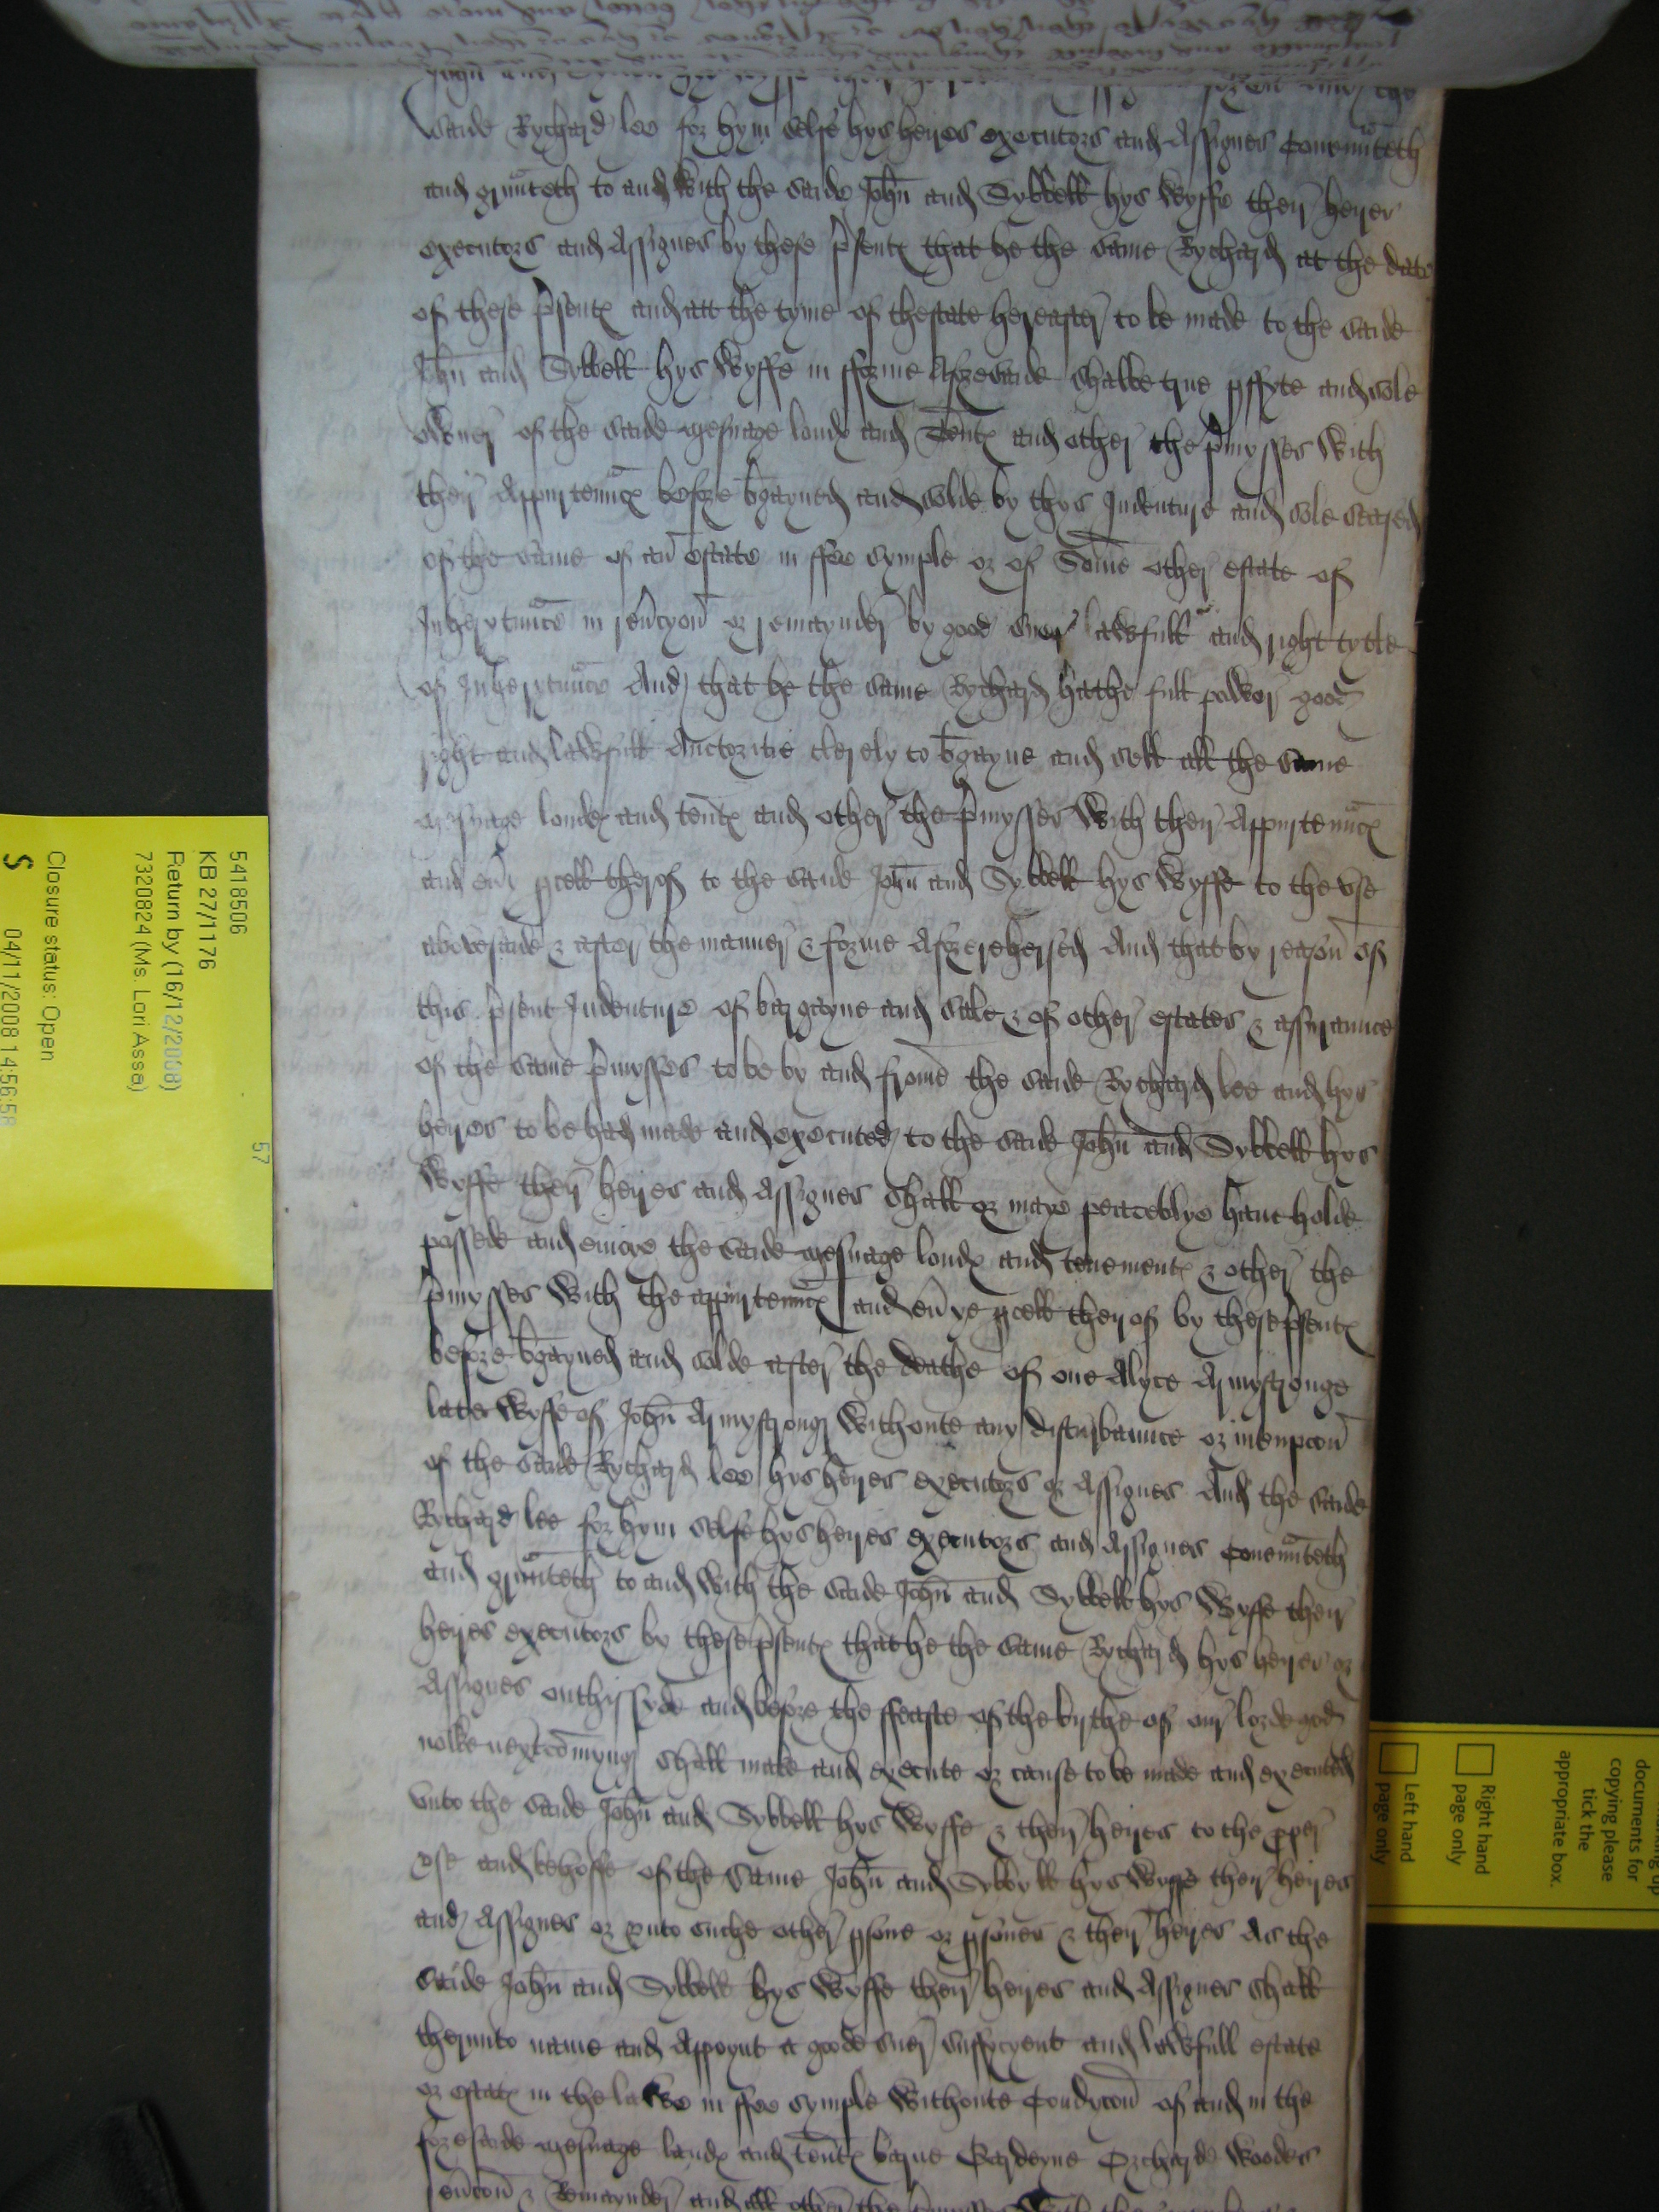 saide Rychard lee for hym selfe hys heires executors and Assignes Covenuteth
and grunteth to and with the saide John and Sybbell hys wyffe their heires
executors and Assignes by these psentes that he the same Rychard at the date
of these psentes and att the tyme of thestate hereafter to be made to the saide
John and Sybbell hys wyffe in fforme Aforesaide shalbe true pffyte and sole
owner of the saide mesuage londes and Tentes and other the pmysses with
their Appurtenuces before bgayned and solde by thys Indenture and sole seazed
of the same of an estate in ffee symple or of Some other estate of
Inherytunce in revcyon or remaynder by good suer lawfull and right tytle
of Inherytunce And that he the same Rychard hathe full power good
right and lawfull Auctoritie clerely to bgayne and sell all the same
mesuage londes and tentes and other the pmysses with their Appurtenuces
and evy pcell therof to the saide John and Sybbell hys wyffe to the vse
abovesaide & after the manner & forme Aforerehersed And that by reason of
this psent Indenture of bargayne and sale & of other estates & assuraunce
of the same pmysses to be by and frome the saide Rychard lee and hys
heires to be had made and executed to the saide John and Sybbell hys
wyffe their heires and Assignes shall or maye peaceblye haue holde
possede and enioye the saide mesuage londes and tenementes & other the
pmysses with the appurtenuces and evye pcell therof by these psentes
before bgayned and solde after the deathe of one Alyce Armystronge
late wyffe of John Armystrong withoute any disturbaunce or interupcon
of the saide Rychard lee hys heires executors or Assignes And the saide
Rychard lee for hym selfe hys heires executors and Assignes Covenuteth
and grunteth to and with the saide John and Sybbell hys wyffe their
heires executors by these psentes that he the same Rychard hys heires or
Assignes onthissyde and before the ffeaste of the birthe of our lorde god
nowe next comyng shall make and execute or cause to be made and executed
vnto the saide John and Sybbell hys wyffe & their heires to the pper
vse and behoffe of the same John and Sybbyll hys wyffe their heires
and Assignes or vnto suche other psone or psones & their heires As the
saide John and Sybbell hys wyffe their heires and Assignes shall
therunto name and Appoynt a goode suer suffycyent and lawfull estate
or estates in the lawe in ffee symple withoute Condycon of and in the
foresaide mesuage landes and tentes barne Gardeyne Orcharde woodes
revcon & Remaynder and all other the pmysses with
5418506
KB 27/1176
Return by (16/12/2008)
7320824 (Ms. Lori Assa)
Closure status: Open
S
04/11/2008 14:56:58
57
documents for
copying please
tick the
appropriate box.
Right hand
page only
Left hand
page only